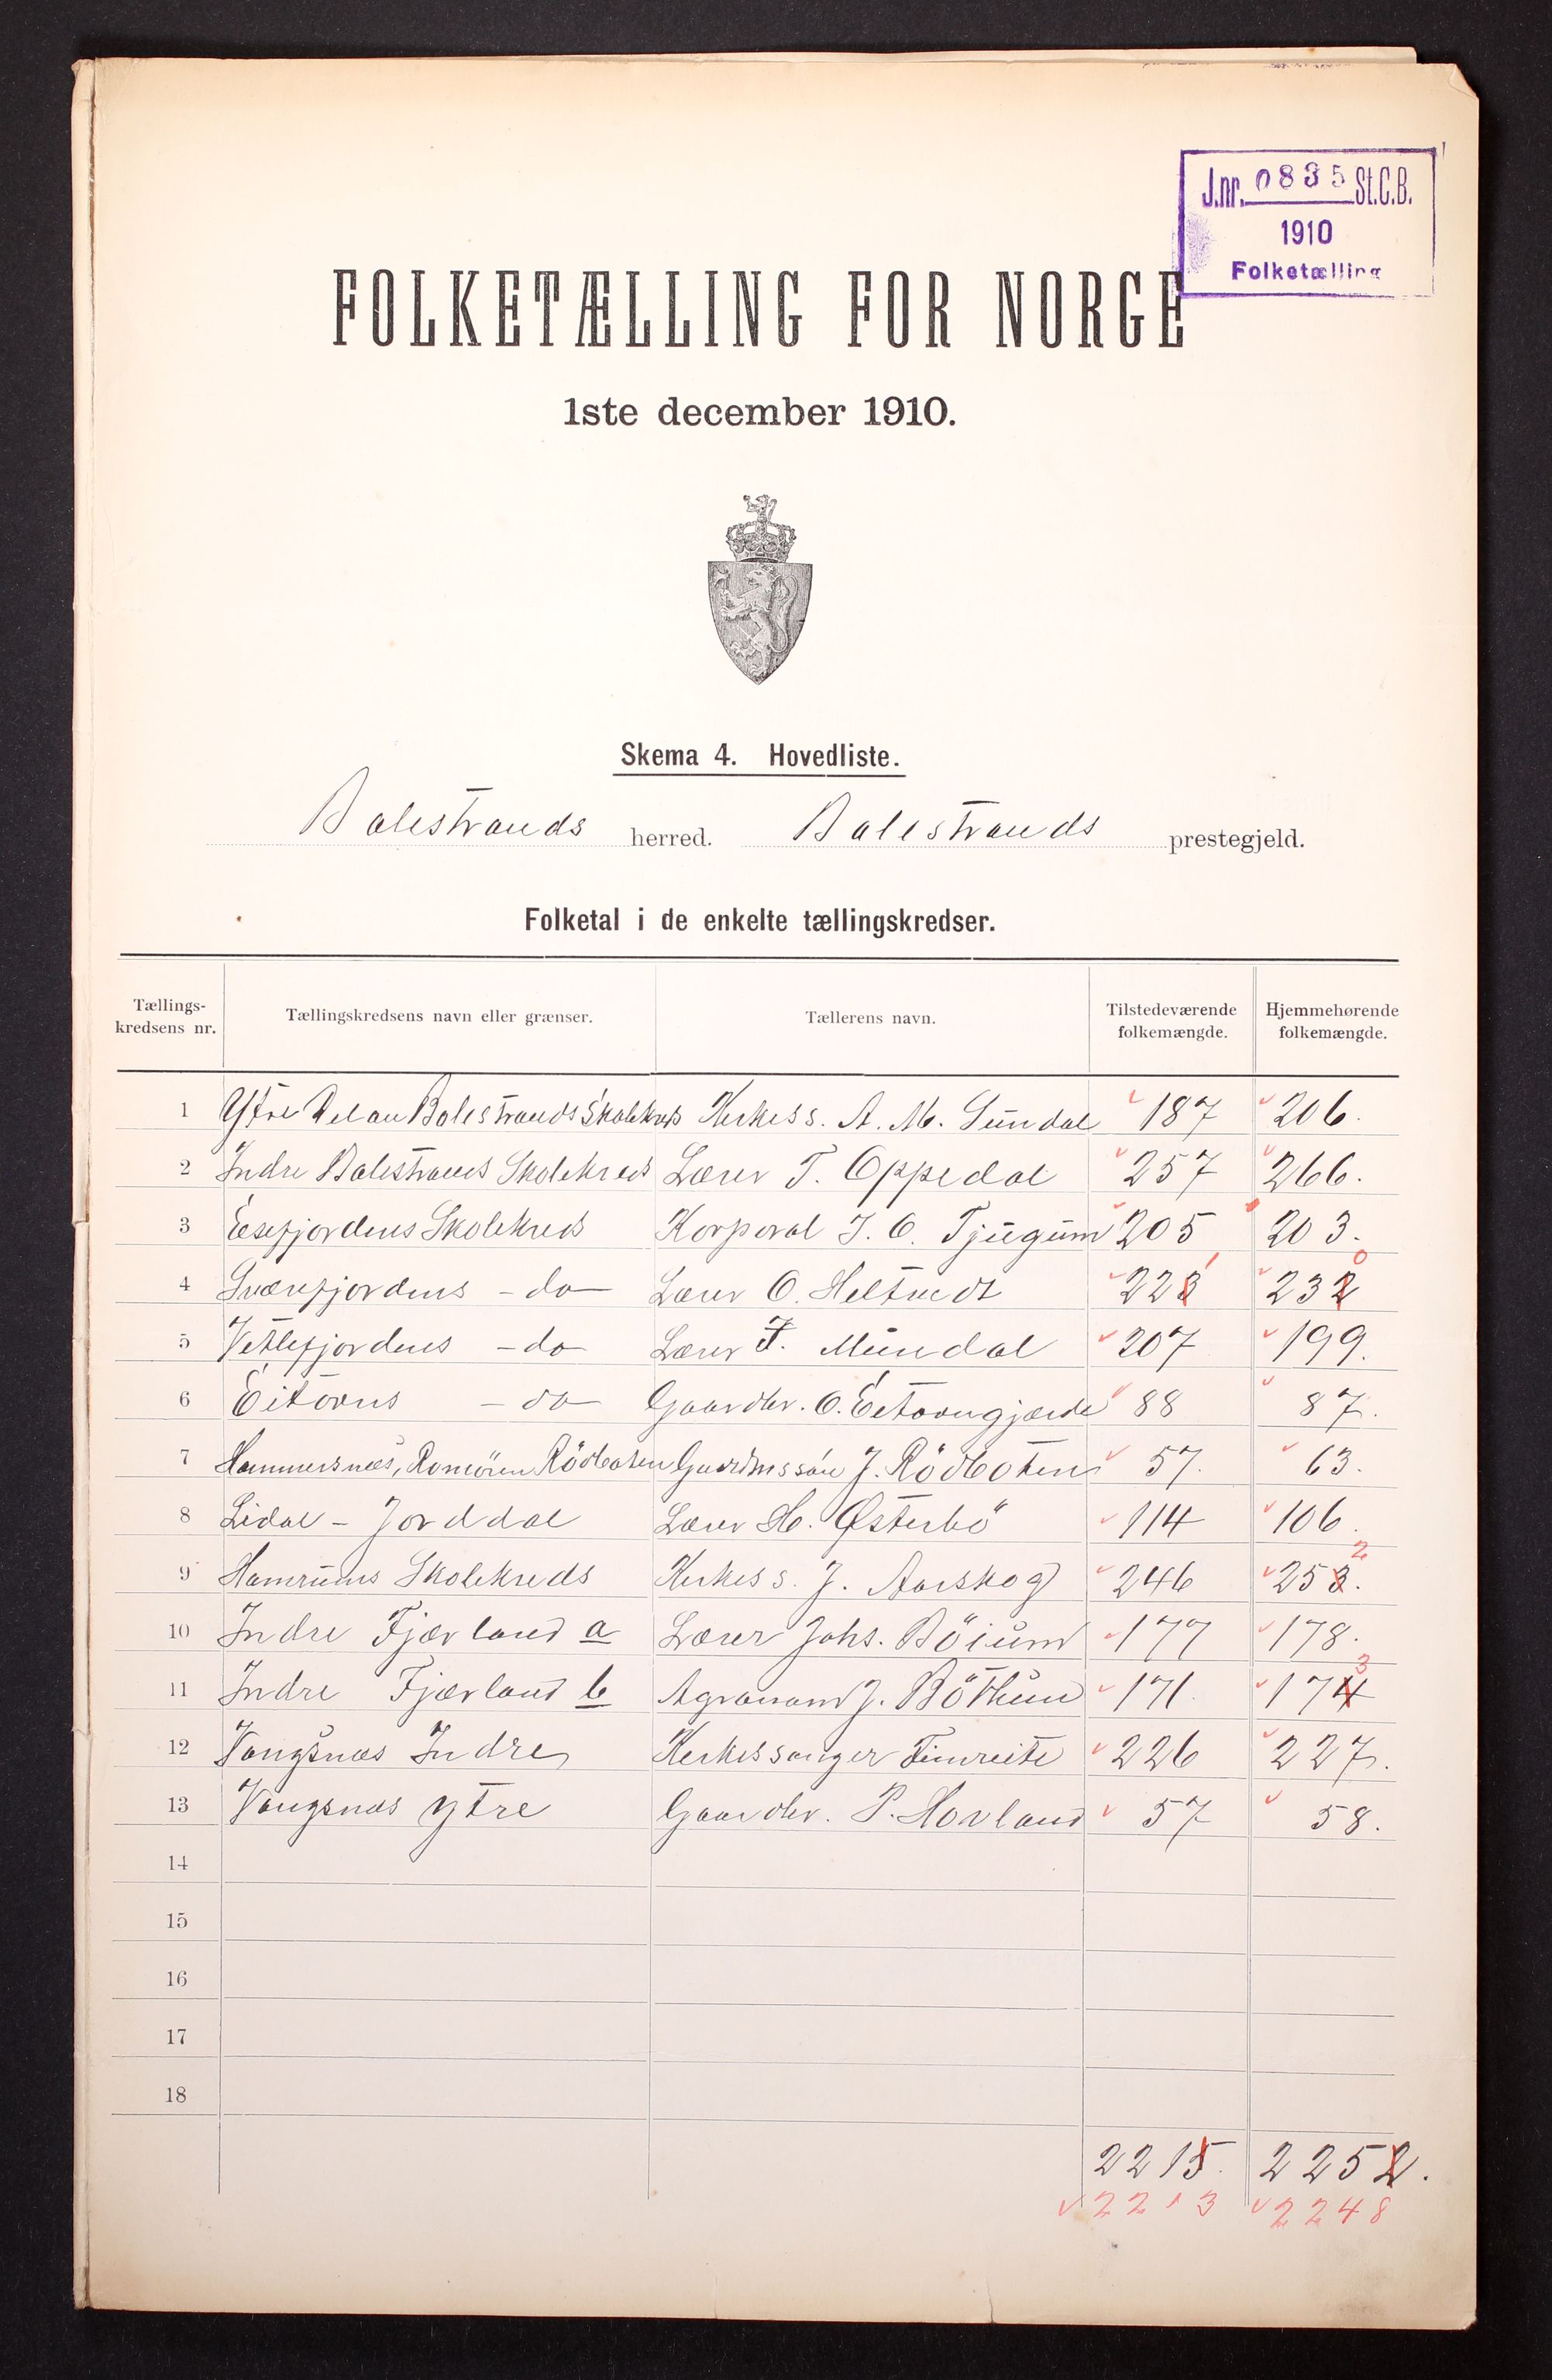 J.nr. 0835 St.C.B.
1910
Folketælling
FOLKETÆLLING FOR NORGE
1ste december 1910.
Skema 4. Hovedliste.
Balestrands herred. Balestrands prestegjeld.
Folketal i de enkelte tællingskredser.
Tællings-kredsens nr. Tællingskredsens navn eller grænser. Tællerens navn. Tilstedeværende folkemængde. Hjemmehørende folkemængde.
1 Ytre Del au Balestrands Skolekreds Kirkess. A. M. Sundal 187 206.
2 Indre Balestrands Skolekreds Lærer T. Oppedal 257 266.
3 Esefjordens Skolekreds Korporal J. O. Tjugum 205 203.
4 Sværefjordens - do Lærer O. Heltvedt 223 1 232 0
5 Vetlefjordens - do Lærer J. Mundal 207 199.
6 Eitorns - do Gaardbr. O. Eitorngjerde 88 87.
7 Hammersnæs, Romören Rödbotten Gaardmssön J. Rödbotten 57. 63.
8 Lidal - Jorddal Lærer H. Østerbö 114 106.
9 Hamrums Skolekreds Kirkess. J. Aarskog 246 253. 2
10 Indre Fjærland a Lærer Johs. Böium 177 178.
11 Indre Fjærland b Agronom J. Böthun 171. 174 3
12 Vangsnæs Indre Kirkesanger Fimreite 226 227.
13 Vangsnæs Ytre Gaardbr. P. Hovland 57 58.
14
15
16
17
18
2215. 2252.
2213 2248